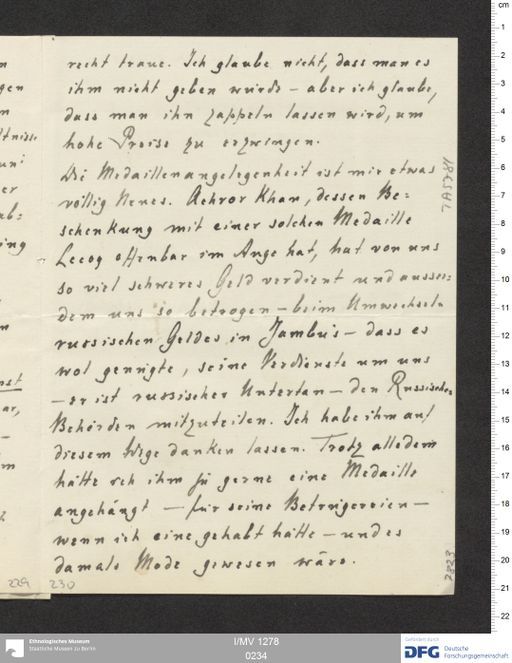 recht traue. Ich glaube nicht, dass man es
ihm nicht geben würde – aber ich glaube,
dass man ihn zappeln lassen wird, um
hohe Preise zu erzwingen.
Die Medaillenangelegenheit ist mir etwas
völlig Neues. Khan, dessen Be=
schenkung mit einer solchen Medaille
Lecoq offenbar im Auge hat, hat von uns
so viel schweres Geld verdient und ausser=
dem uns so betrogen – beim Umwechseln
russischen Geldes in Jambus – dass es
wol genügte, seine Verdienste um uns
– er ist russischer Untertan – den Russischen
Behörden mitzuteilen. Ich habe ihm auf
diesem Wege danken lassen. Trotz alledem
hätte ich ihm ja gerne eine Medaille
angehängt – für seine Betrügereien –
wenn ich eine gehabt hätte – und es
damals Mode gewesen wäre.
229 230
TA5781
2823
n
gen
ltnisse
un:
er
ab=
ing
ar,
Ethnologisches Museum
Staatliche Museen zu Berlin
I/MV 1278
0234
Gefördert durch
DFG Deutsche
Forschungsgemeinschaft
cm
1
2
3
4
5
6
7
8
9
10
11
12
13
14
15
16
17
18
19
20
21
22